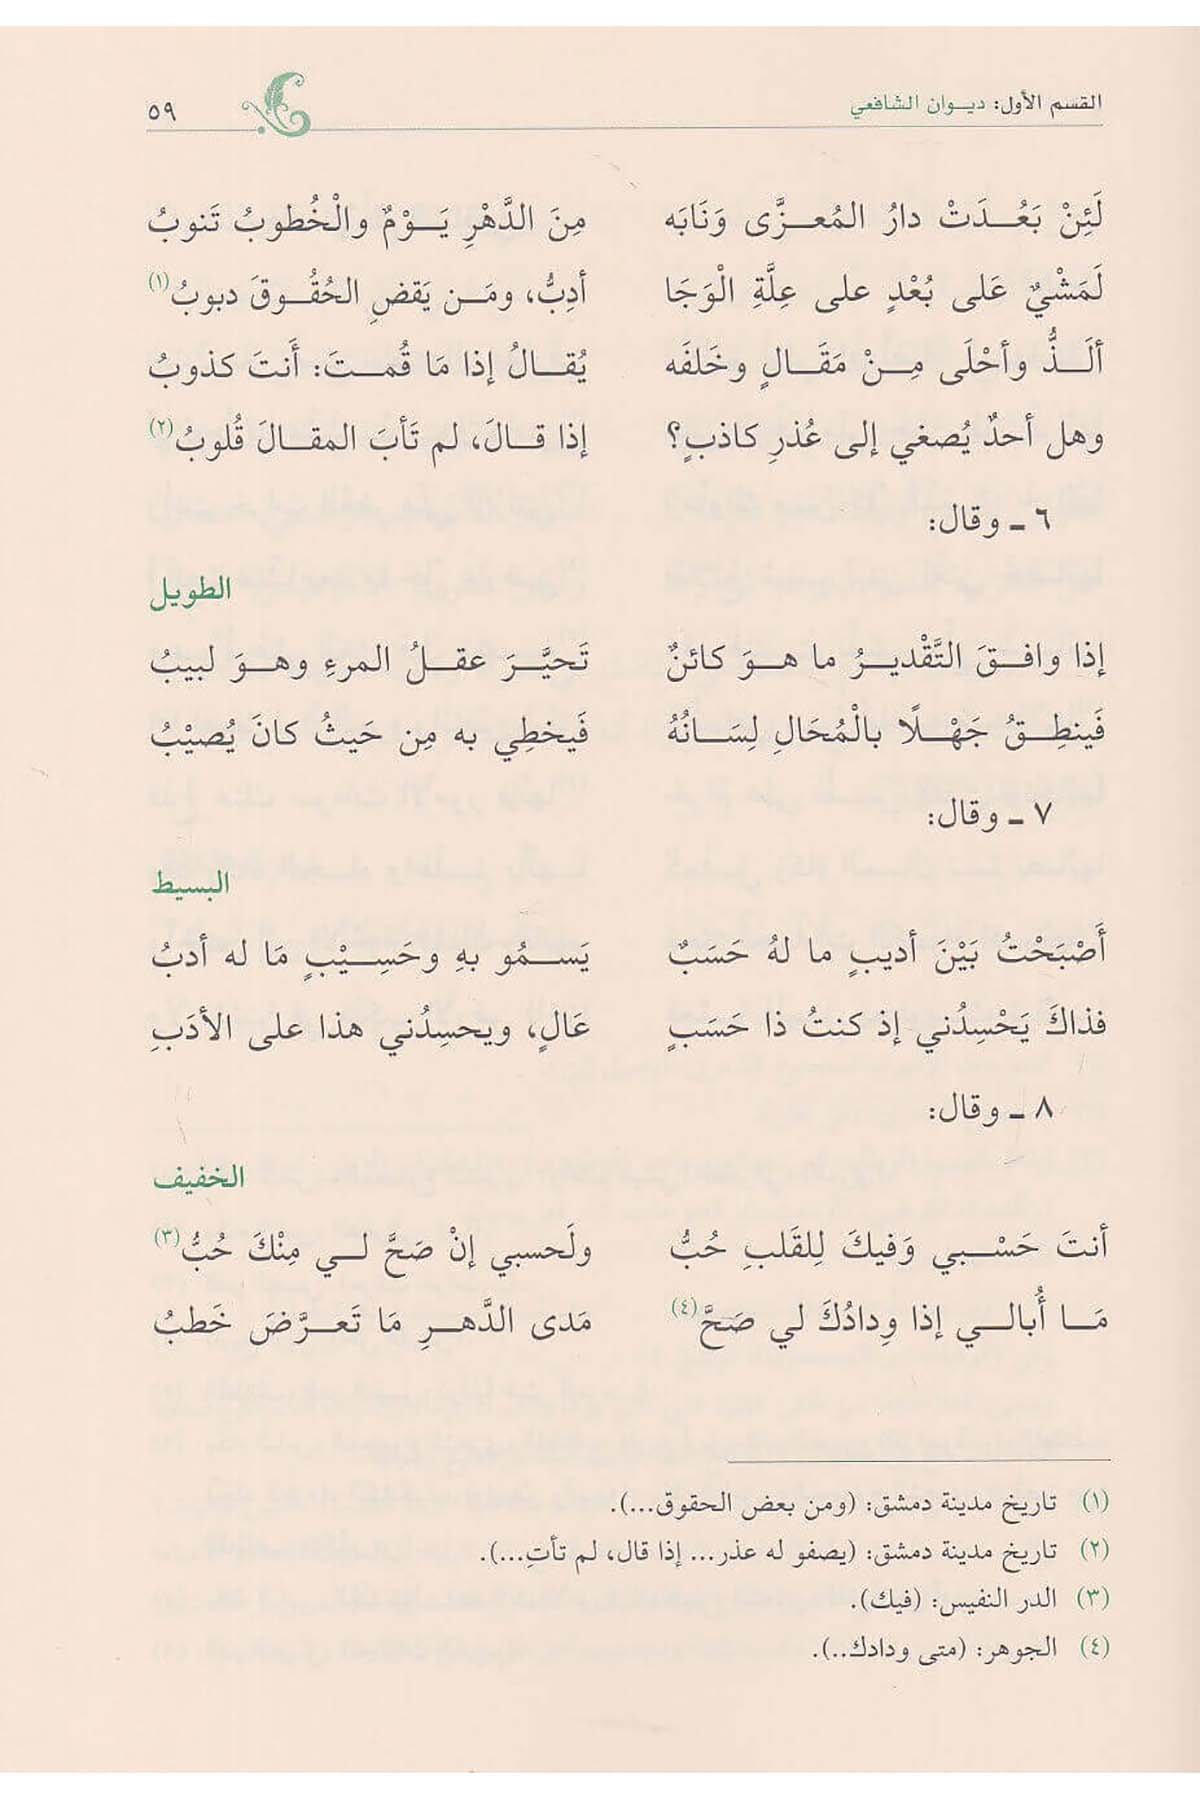 القسم الأول: ديـوان الشافعي ٥٩
لَئِنْ بَعُدَتْ دارُ المُعزَّى وَنَابَه مِنَ الدَّهْرِ يَوْمٌ والْخُطوبُ تَنوبُ
لَمَشْيٌ عَلى بُعْدٍ على عِلَّةِ الْوَجَا أدِبُّ، ومَن يَقضِ الحُقُوقَ دبوبُ(١)
ألَذُّ وأحْلَى مِنْ مَقَالٍ وخَلفَه يُقالُ إذا مَا قُمتَ: أَنتَ كذوبُ
وهل أحدٌ يُصغي إلى عُذرِ كاذبٍ؟ إذا قالَ، لم تَأبَ المقالَ قُلوبُ(٢)
٦ ـ وقال:
الطويل
إذا وافقَ التَّقْديرُ ما هوَ كائنٌ تَحيَّرَ عقلُ المرءِ وهوَ لبيبُ
فَينطِقُ جَهْلًا بالْمُحَالِ لِسَانُهُ فَيخطِي به مِن حَيثُ كانَ يُصيْبُ
٧ ـ وقال:
البسيط
أَصْبَحْتُ بَيْنَ أديبٍ ما لهُ حَسَبٌ يَسمُو بهِ وحَسِيْبٍ مَا له أدبُ
فذاكَ يَحْسِدُني إذ كنتُ ذا حَسَبٍ عَالٍ، ويحسِدُني هذا على الأدَبِ
٨ ـ وقال:
الخفيف
أنتَ حَسْبي وَفيكَ لِلقَلبِ حُبُّ ولَحسبي إنْ صَحَّ لي مِنْكَ حُبُّ(٣)
مَا أُبالي إذا وِدادُكَ لي صَحَّ(٤) مَدى الدَّهرِ مَا تَعرَّضَ خَطبُ
(١) تاريخ مدينة دمشق: (ومن بعض الحقوق...).
(٢) تاريخ مدينة دمشق: (يصفو له عذر... إذا قال، لم تأتِ...).
(٣) الدر النفيس: (فيك).
(٤) الجوهر: (متى ودادك..).